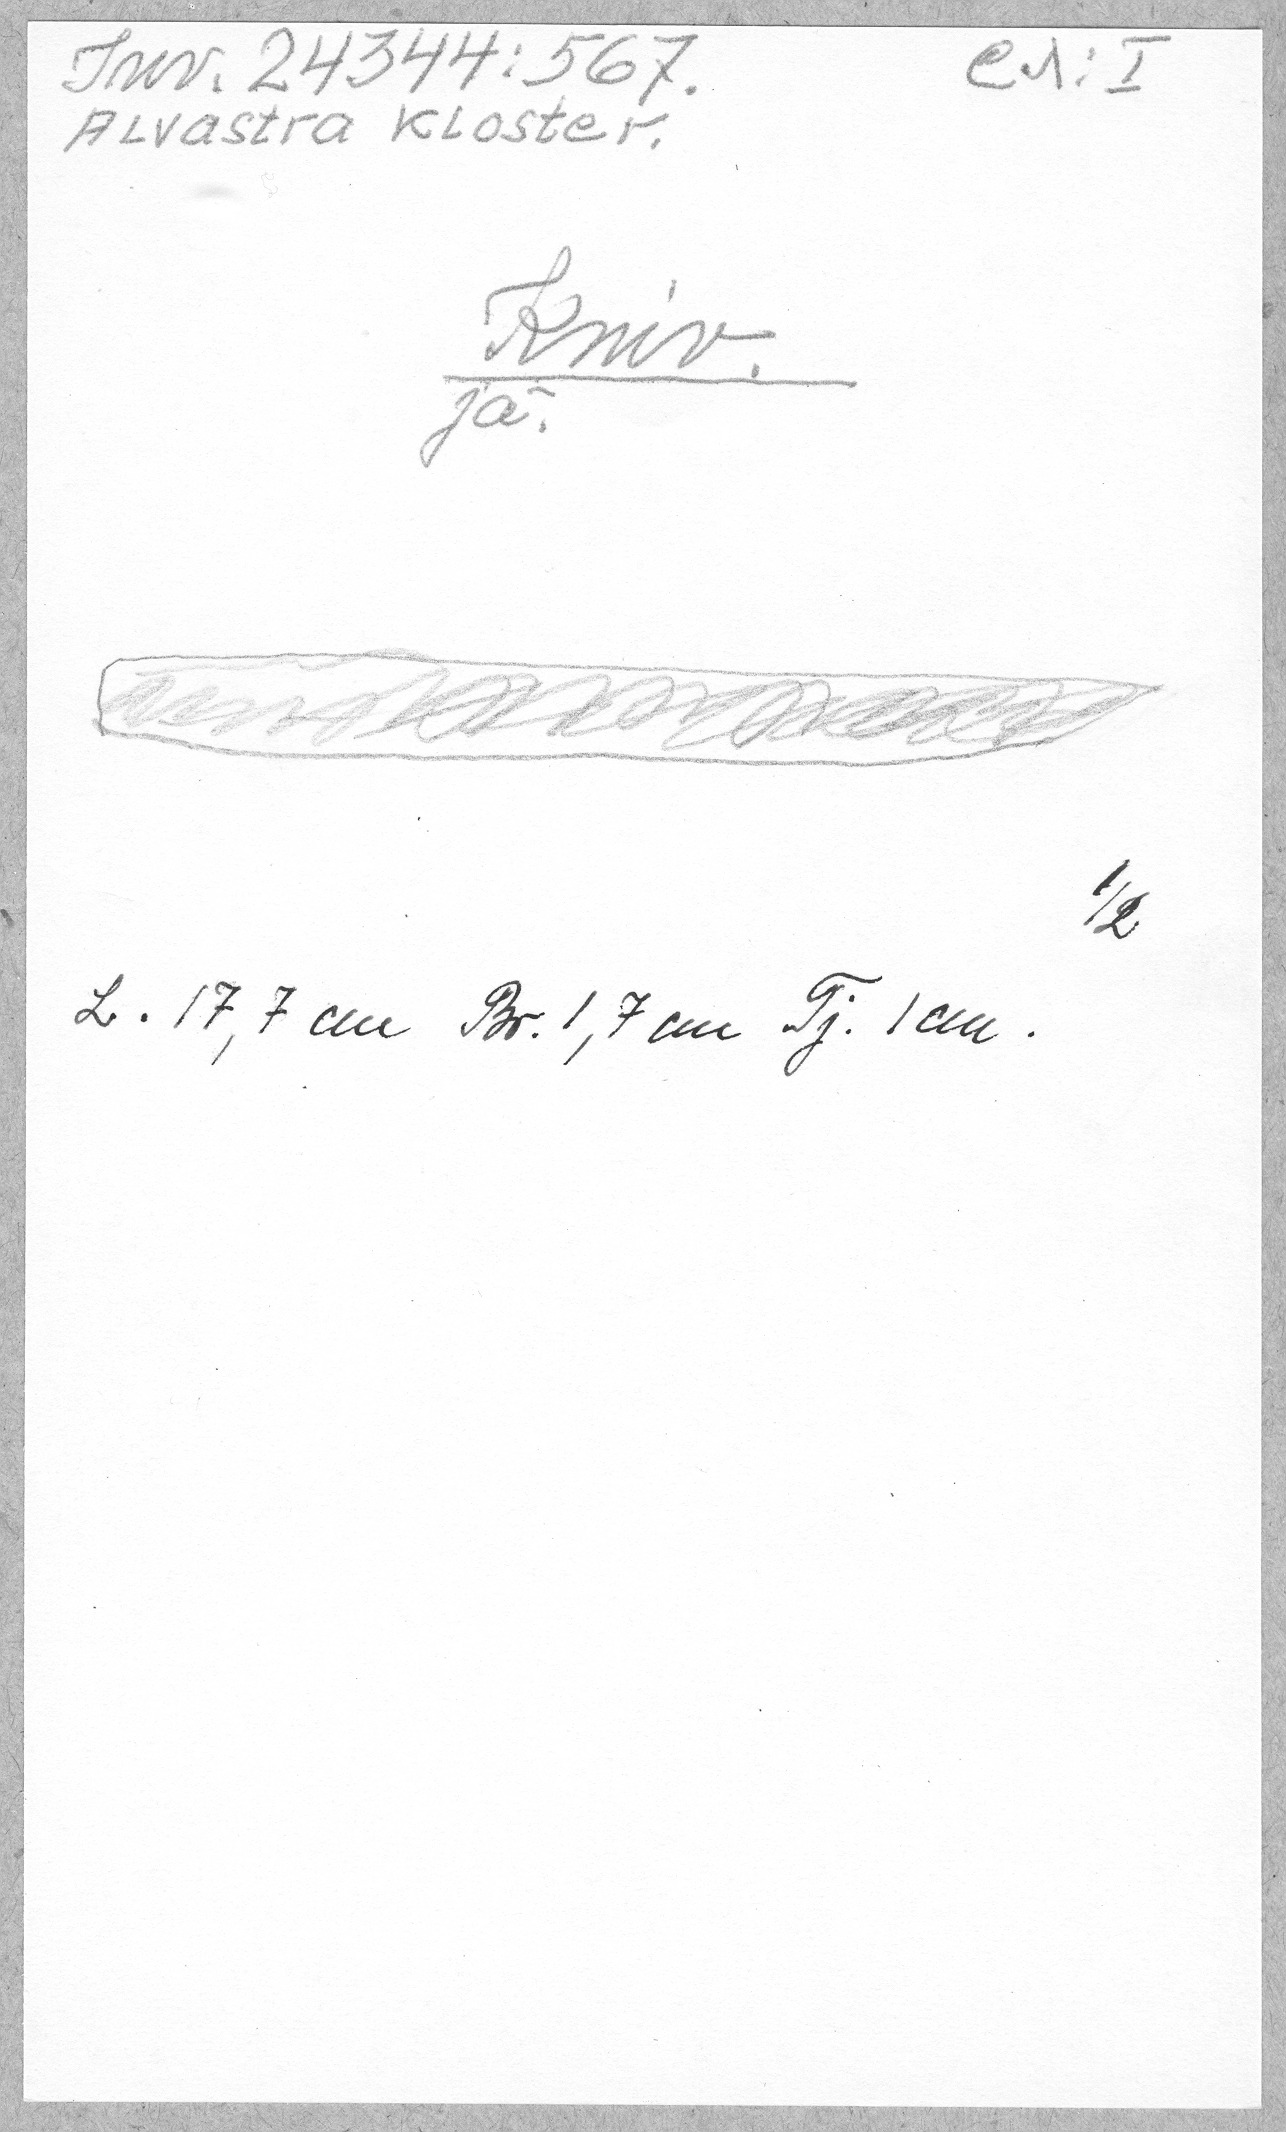 Inv. 24344:567.
Alvastra Kloster.
Kniv.
jä.
1/2
L. 17,7 cm Br. 1,7 cm Tj. 1 cm.